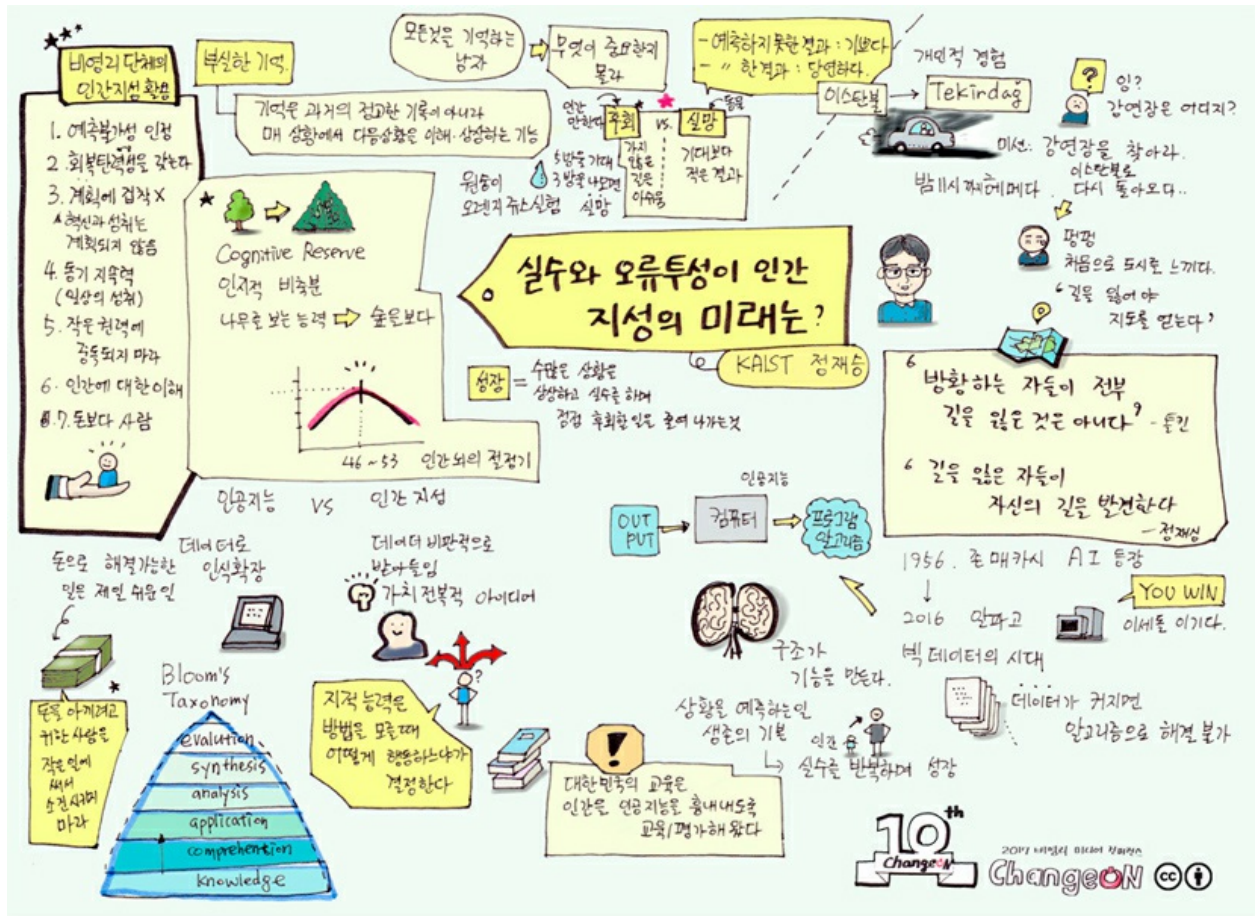 비영리 단체의
인간지성 활용
1. 예측불가성 인정
2. 회복탄력성을 갖는다
3. 계획에 집착 X
* 혁신과 성취는
계획되지 않음
4. 동기 지속력
(일상의 성취)
5. 작은 권력에
중독되지 마라
6. 인간에 대한 이해
7. 돈보다 사람
부실한 기억.
기억은 과거의 정교한 기록이 아니라
매 상황에서 다음상황을 이해·상상하는 기능
Cognitive Reserve
인지적 비축분
나무로 보는 능력 ⇨ 숲을보다
46~53 인간 뇌의 절정기
모든것을 기억하는
남자
무엇이 중요한지
몰라
- 예측하지 못한 결과 : 기쁘다
- 〃 한 결과 : 당연하다.
인간
만한다
후회
vs.
실망
동물
가지
않은
길은
아쉬움
기대보다
적은 결과
원숭이
오렌지 쥬스실험
5방울 기대
3방울 나오면
실망
개인적 경험
이스탄불 → Tekirdağ
?
잉?
강연장은 어디지?
미션: 강연장을 찾아라.
밤 11시 까지 헤메다.
이스탄불로
다시 돌아오다..
펑펑
처음으로 도시로 느끼다.
‘길을 잃어야
지도를 얻는다’
실수와 오류투성이 인간
지성의 미래는?
KAIST 정재승
성장 = 수많은 상황을
상상하고 실수를 하며
점점 후회할 일은 줄여 나가는것
‘방황하는 자들이 전부
길을 잃은 것은 아니다’ - 톨킨
‘길을 잃은 자들이
자신의 길을 발견한다
- 정재승
인공지능 VS 인간 지성
데이터로
인식확장
데이터 비판적으로
받아들임
가치 전복적 아이디어
돈으로 해결가능한
일은 제일 쉬운 일
돈을 아끼려고
귀한 사람을
작은 일에
써서
소진시키지
마라
Bloom's
Taxonomy
evalution
synthesis
analysis
application
comprehention
knowledge
?
지적 능력은
방법을 모를때
어떻게 행동하느냐가
결정한다
!
대한민국의 교육은
인간을 인공지능을 흉내내도록
교육/평가해 왔다
인공지능
OUT
PUT
컴퓨터
프로그램
알고리즘
구조가
기능을 만든다.
상황을 예측하는 일
생존의 기본
인간
실수를 반복하며 성장
1956. 존 매카시 AI 등장
2016 알파고
YOU WIN
이세돌 이기다.
빅 데이터의 시대
데이터가 커지면
알고리즘으로 해결 불가
10th
ChangeON
2017 비영리 미디어 컨퍼런스
ChangeON
cc